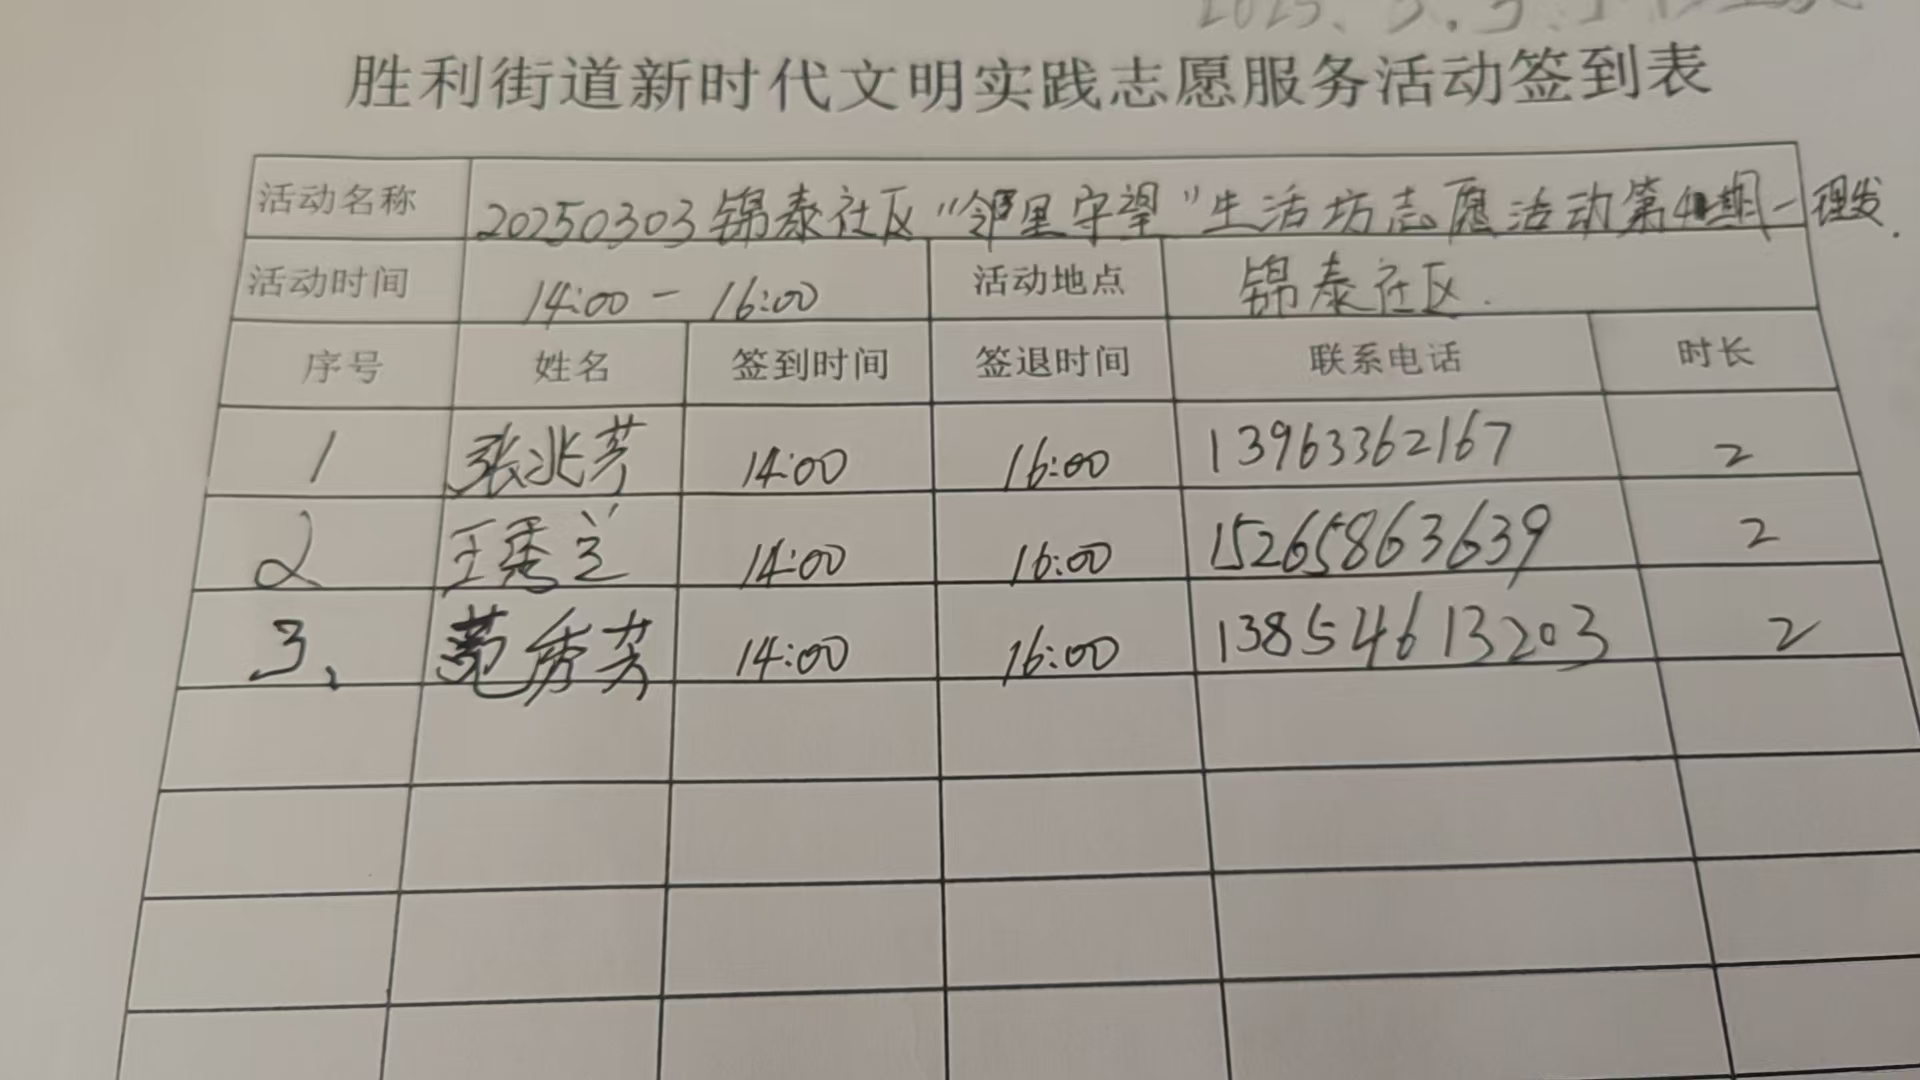 2025.3.3
胜利街道新时代文明实践志愿服务活动签到表
活动名称 20250303锦泰社区“邻里守望”生活坊志愿活动第4期—理发.
活动时间 14:00 - 16:00 活动地点 锦泰社区.
序号 姓名 签到时间 签退时间 联系电话 时长
1 张兆芳 14:00 16:00 13963362167 2
2 王秀兰 14:00 16:00 15265863639 2
3、 范秀芳 14:00 16:00 13854613203 2